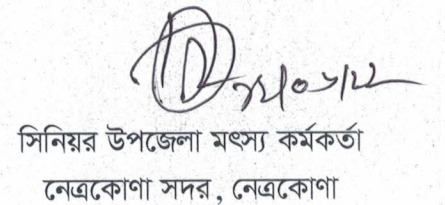 সিনিয়র উপজেলা মৎস্য কর্মকর্তা
নেত্রকোণা সদর, নেত্রকোণা